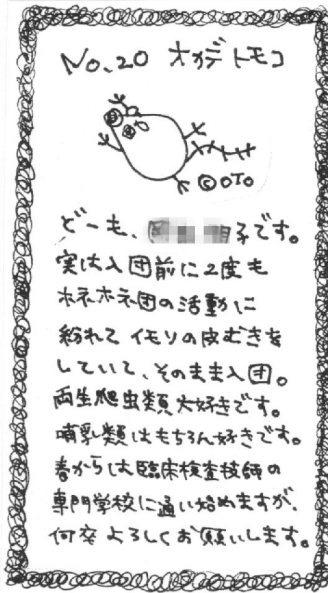 No.20 オカデトモコ
©OTO
どーも、子です。
実は入団前に2度も
ホネホネ団の活動に
紛れて イモリの皮むきを
していて、そのまま入団。
両生爬虫類大好きです。
哺乳類はもちろん好きです。
春からは臨床検査技師の
専門学校に通い始めますが、
何卒よろしくお願いします。